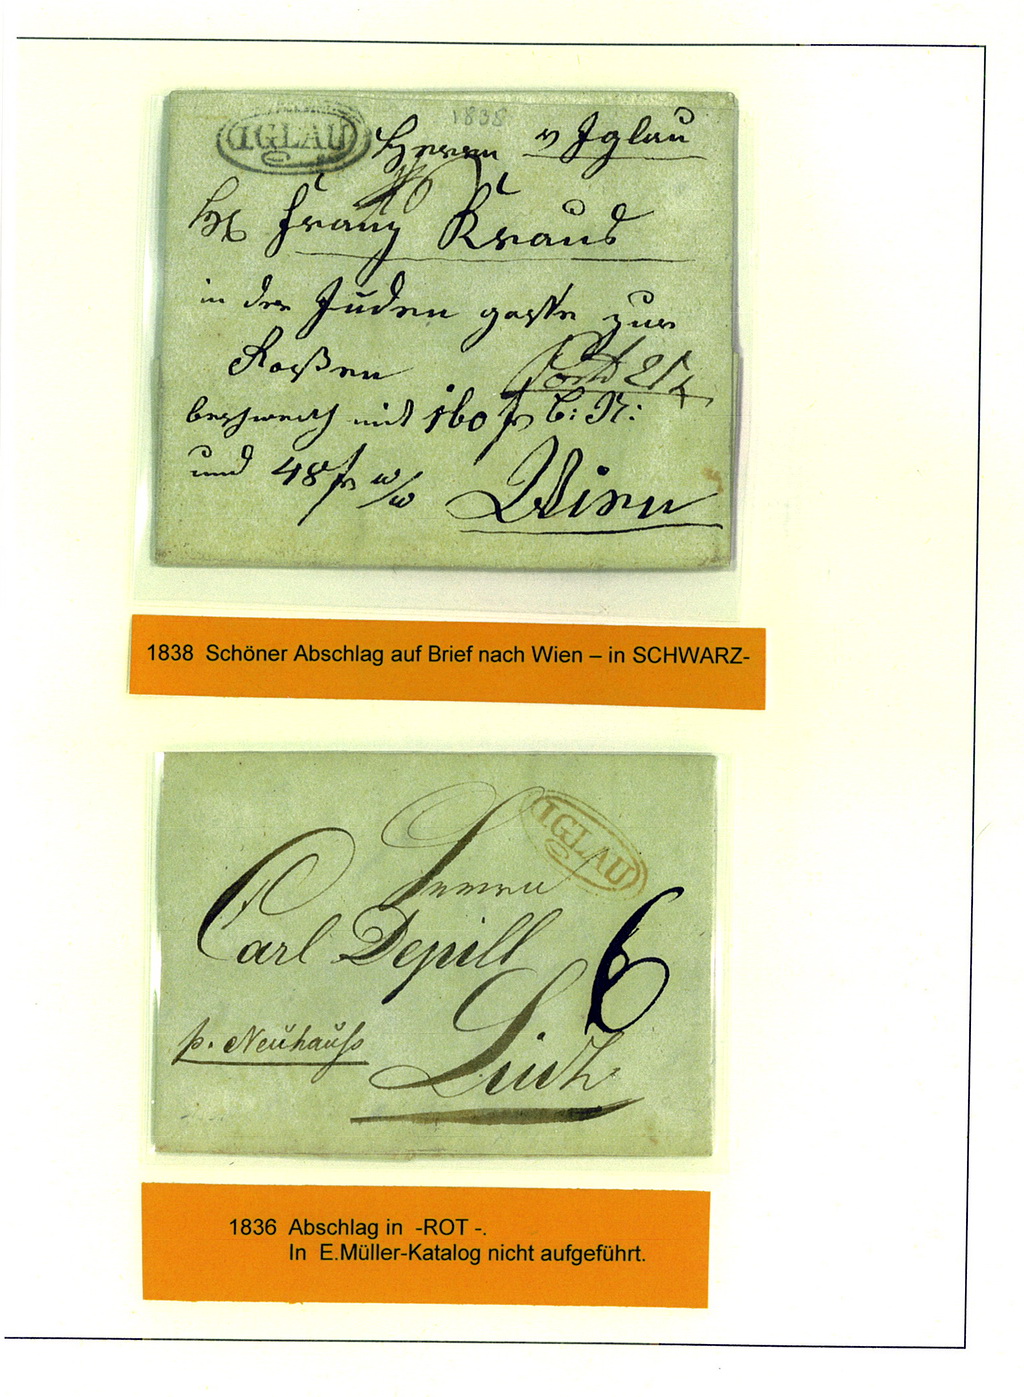 IGLAU
1838
Herrn v Iglau
Franz Kraus
in der Juden gasse zur
beschwerth mit 160 f C: M:
und 48 f w/w Wien
1838 Schöner Abschlag auf Brief nach Wien – in SCHWARZ-
IGLAU
Herrn
Carl Depill
6
p. Neuhauß
1836 Abschlag in -ROT -.
In E.Müller-Katalog nicht aufgeführt.